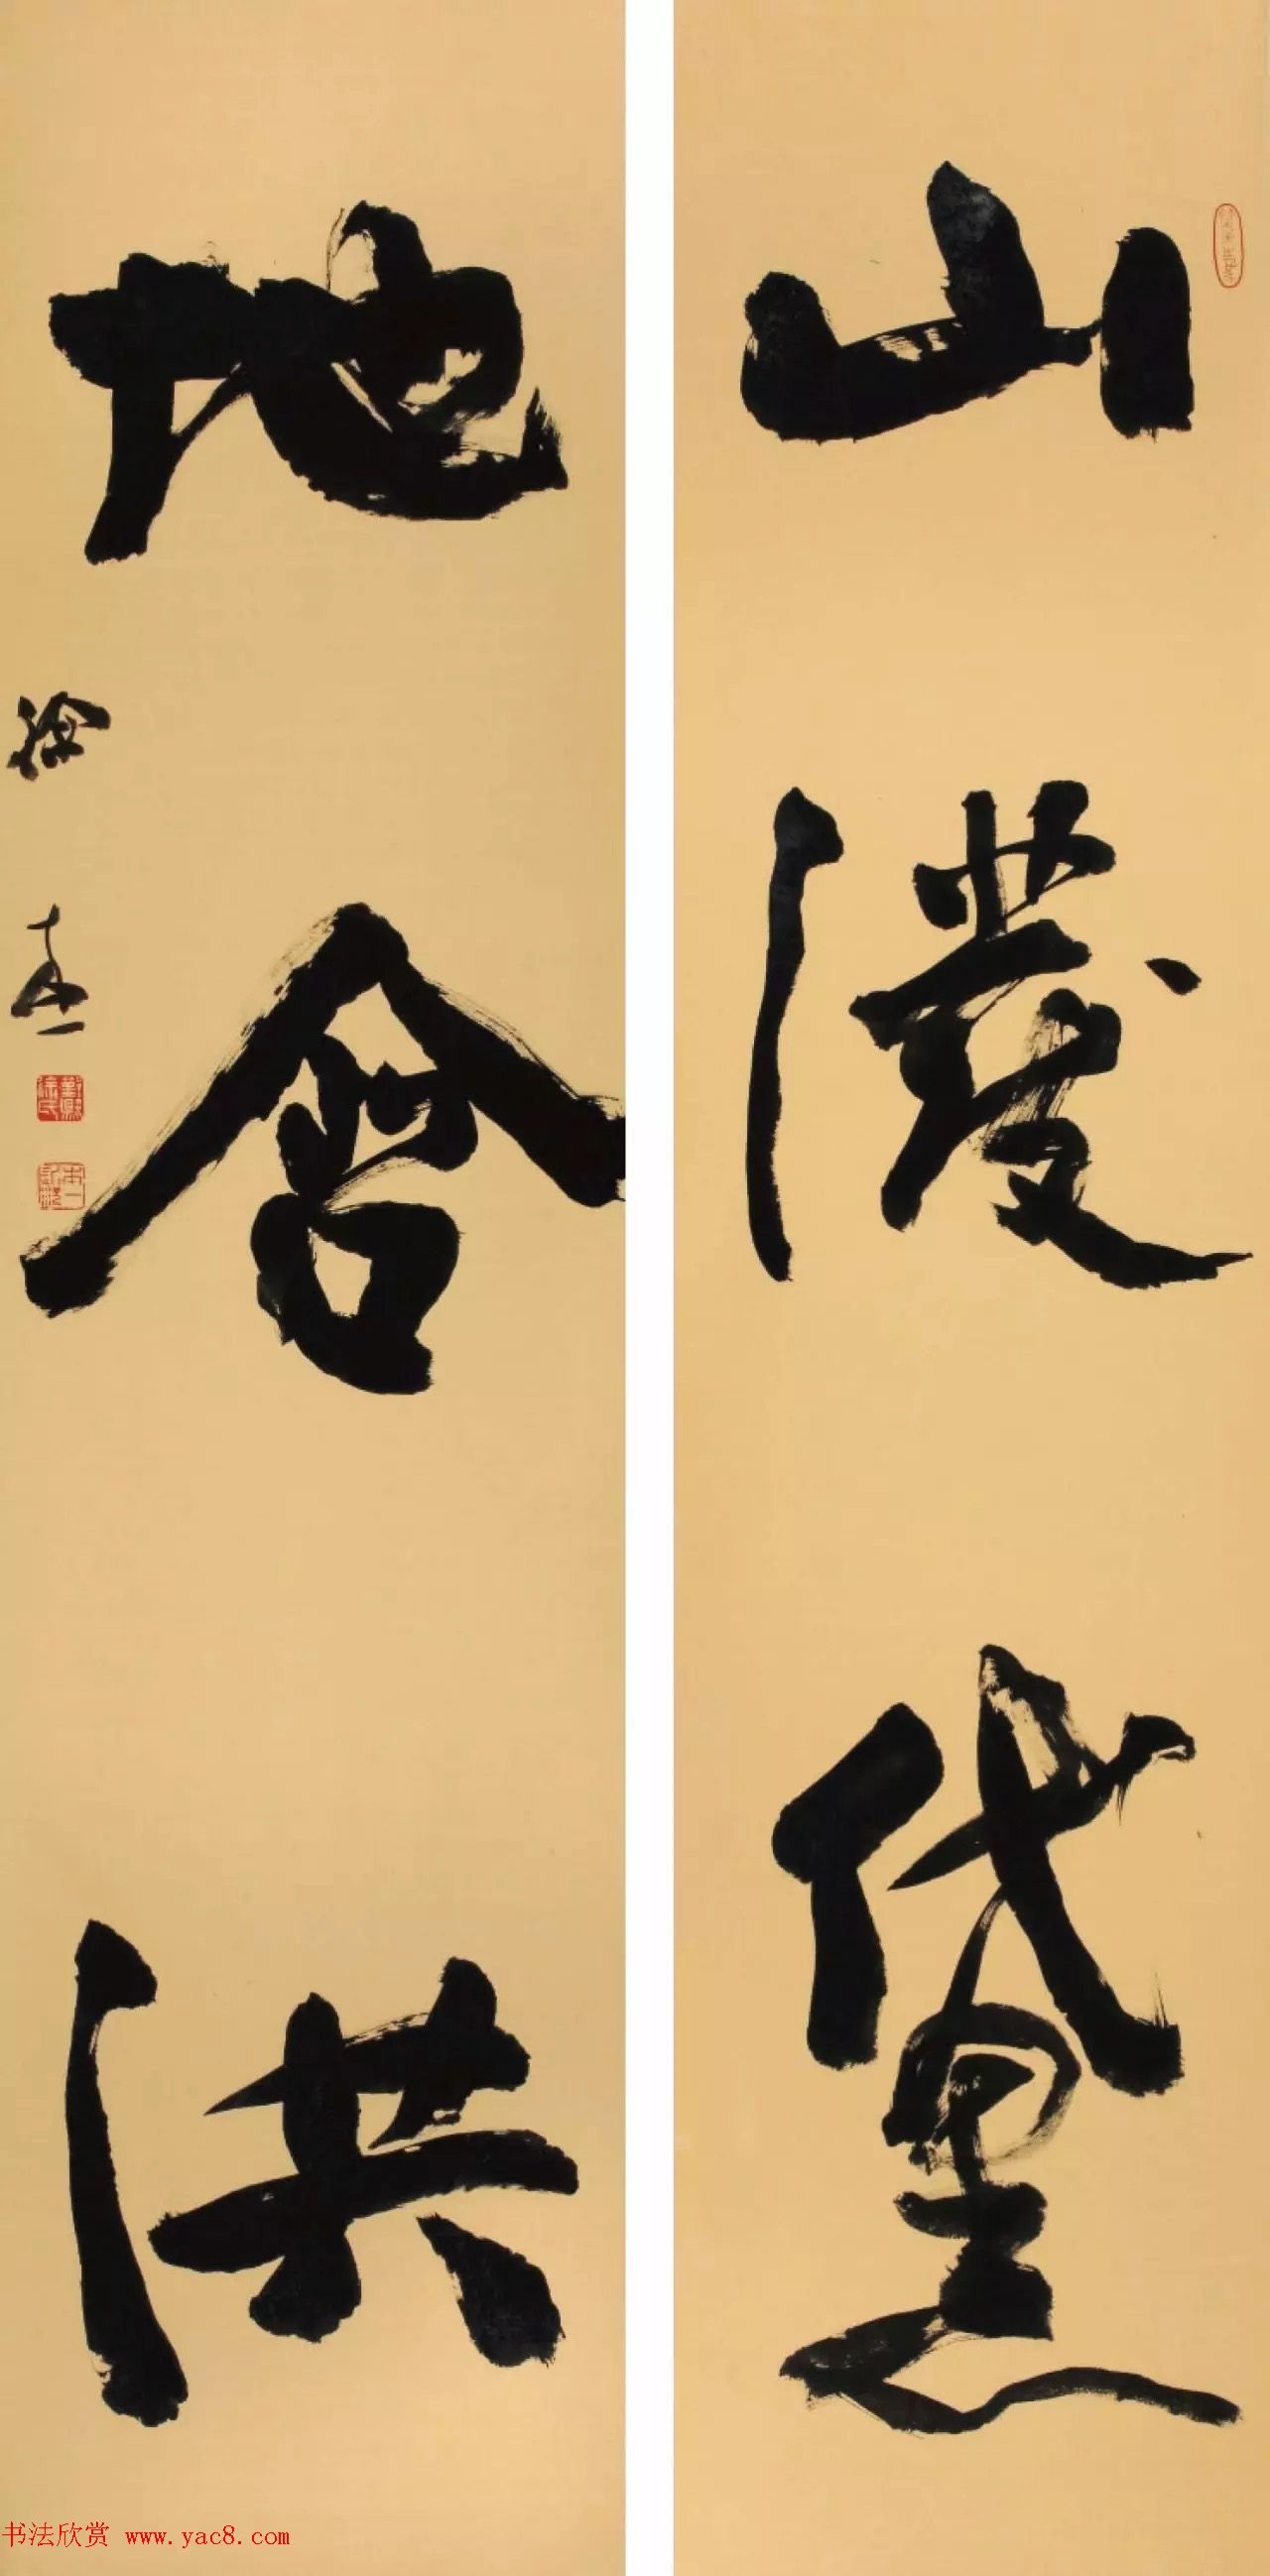 山潑黛
地含洪
徐本一
书法欣赏 www.yac8.com